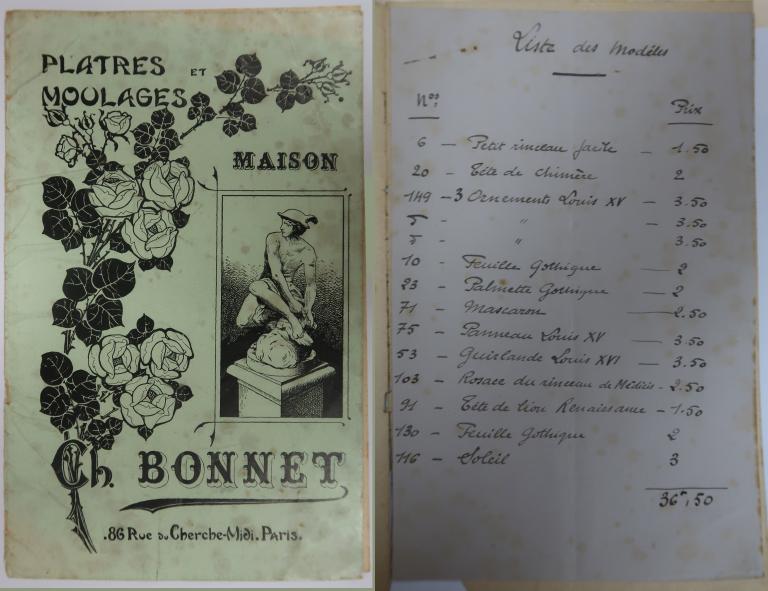 PLATRES ET
MOULAGES
MAISON
Ch. BONNET
.86 Rue du Cherche-Midi. Paris.
Liste des Modèles
Nos. Prix
6 — Petit rinceau facile — 1.50
20 — Tête de chimère 2
149 — 3 Ornements Louis XV — 3.50
5 — " — 3.50
5 — " 3.50
10 — Feuille Gothique — 2
23 — Palmette Gothique — 2
71 — Mascaron — 2.50
75 — Panneau Louis XV — 3.50
53 — Guirlande Louis XVI — 3.50
103 — Rosace du rinceau de Médicis — 2.50
91 — Tête de lion Renaissance — 1.50
130 — Feuille Gothique 2
116 — Soleil 3
36fr,50